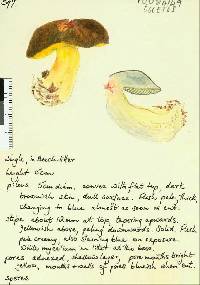 Single, in Beech litter
height 8cm
pileus 7cm diam, convex with flat top, dark
brownish skin, dull surface. Flesh pale, thick,
changing to blue almost as soon as cut.
stipe about 12mm at top, tapering upwards.
Yellowish above, paling downwards. Solid, flesh
pale creamy, also staining blue on exposure.
White mycelium in litter at the base.
pores adnexed, shallow layer, pore mouths bright
yellow, mouths & walls of pores blueish when cut.
spores